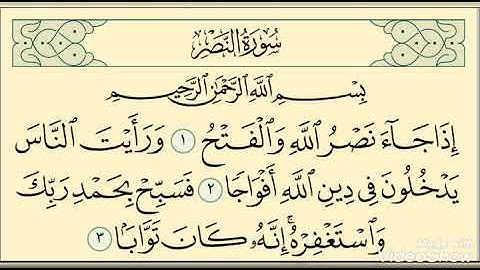 سُورَةُ النَّصْرِ
بِسْمِ اللَّهِ الرَّحْمَٰنِ الرَّحِيمِ
إِذَا جَاءَ نَصْرُ اللَّهِ وَالْفَتْحُ ١ وَرَأَيْتَ النَّاسَ
يَدْخُلُونَ فِي دِينِ اللَّهِ أَفْوَاجًا ٢ فَسَبِّحْ بِحَمْدِ رَبِّكَ
وَاسْتَغْفِرْهُ ۚ إِنَّهُ كَانَ تَوَّابًا ٣
Made with
VideoShow